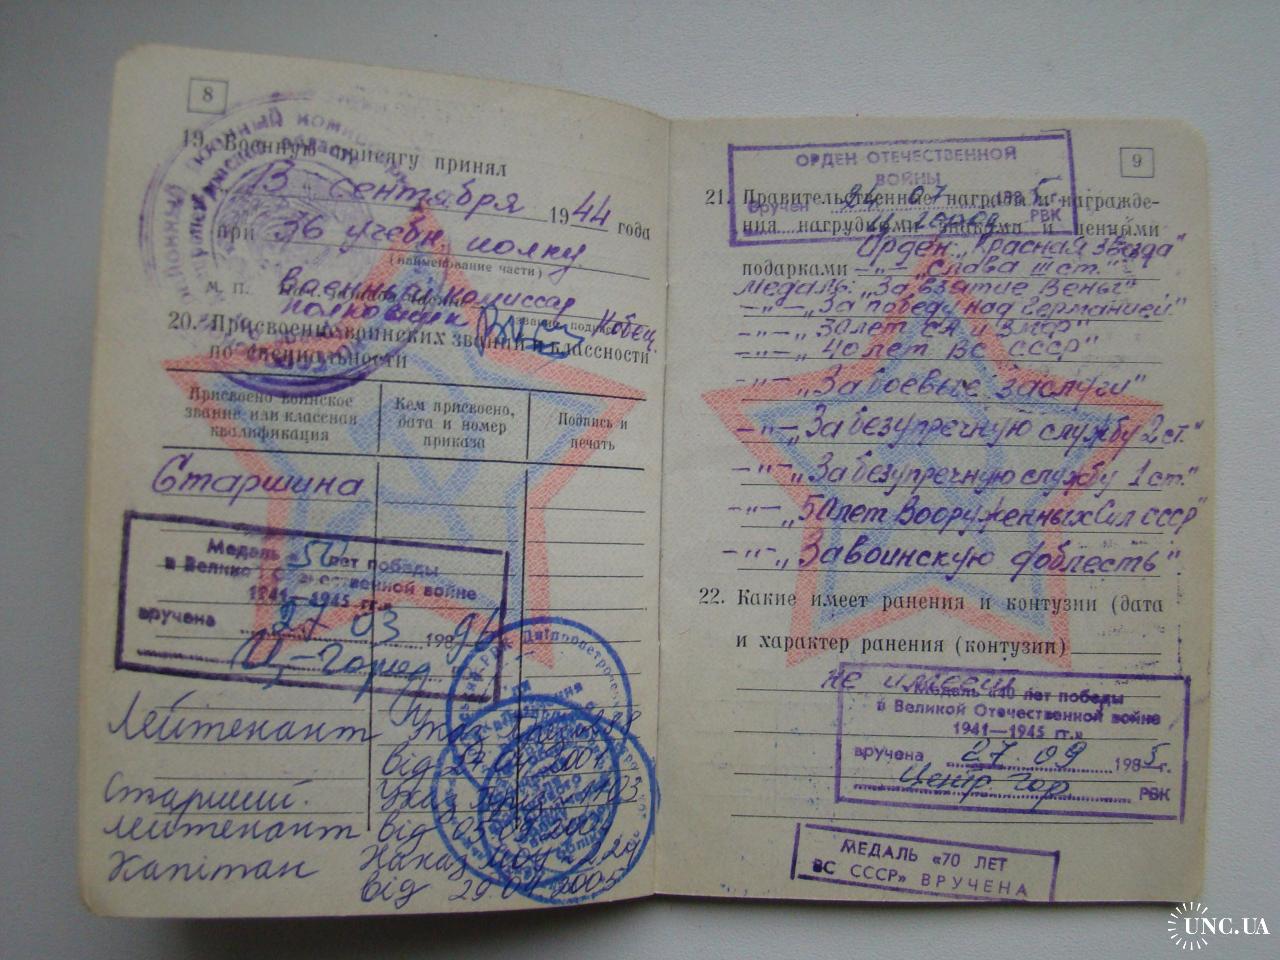 8
19. Военную присягу принял
13 сентября 1944 года
при 36 учебн. полку
(наименование части)
М. П.
Военный комиссар
полковник Кобец
20. Присвоение воинских званий и классности
по специальности
Присвоено воинское
звание или классная
квалификация
Кем присвоено,
дата и номер
приказа
Подпись и
печать
Старшина
Медаль «50 лет победы
в Великой Отечественной войне
1941—1945 гг.»
вручена 27 03 1996
Лейтенант Указ През. 488
від 27.04.2001
Старший Указ През. 1103
лейтенант від
Капітан Наказ МОУ 229
від 29.04.2005
9
ОРДЕН ОТЕЧЕСТВЕННОЙ
ВОЙНЫ
Вручен 07 1985 г.
РВК
21. Правительственные награды и награжде-
ния нагрудными знаками и ценными
Орден „Красная звезда"
подарками —"— „Слава III ст."
медаль: „За взятие Вены"
—"— „За победу над Германией"
—"— „30 лет СА и ВМФ"
—"— „40 лет ВС СССР"
—"— „За боевые заслуги"
—"— „За безупречную службу 2 ст."
—"— „За безупречную службу 1 ст."
—"— „50 лет Вооруженных Сил СССР"
—"— „За воинскую доблесть"
22. Какие имеет ранения и контузии (дата
и характер ранения (контузии)
не имеет
Медаль «40 лет победы
в Великой Отечественной войне
1941—1945 гг.»
вручена 27 09 1985 г.
Центр. Гор. РВК
МЕДАЛЬ «70 ЛЕТ
ВС СССР» ВРУЧЕНА
UNC.UA